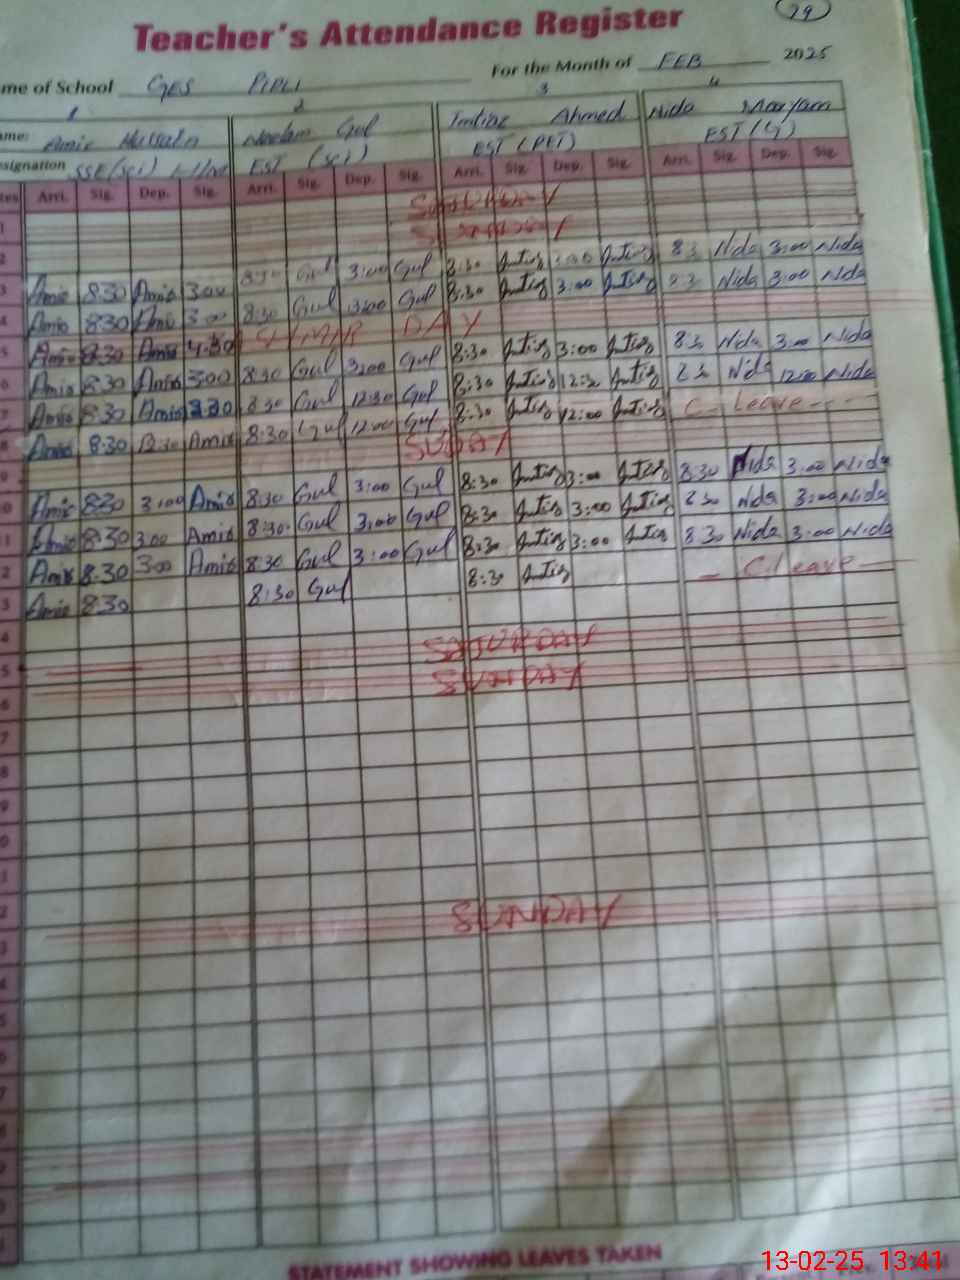 29
Teacher's Attendance Register
me of School GES PIPLI For the Month of FEB 2025
1 2 3 4
ame: Amir Hussain Neelam Gul Imtiaz Ahmed Nida Maryam
esignation SSE(sci) EST (sci) EST (PET) EST (G)
tes Arri. Sig. Dep. Sig. Arri. Sig. Dep. Sig. Arri. Sig. Dep. Sig. Arri. Sig. Dep. Sig.
1 SATURDAY
2 SUNDAY
3 Amir 8:30 Amir 3:00 8:30 Gul 3:00 Gul 8:30 Imtiaz 3:00 Imtiaz 8:3 Nida 3:00 Nida
4 Amir 8:30 Amir 3:00 8:30 Gul 3:00 Gul 8:30 Imtiaz 3:00 Imtiaz 8:3 Nida 3:00 Nida
5 Amir 8:30 Amir 4:30 DAY
6 Amir 8:30 Amir 3:00 8:30 Gul 3:00 Gul 8:30 Imtiaz 3:00 Imtiaz 8:3 Nida 3:00 Nida
7 Amir 8:30 Amir 8:30 Gul 12:30 Gul 8:30 Imtiaz 12:3 Imtiaz 8:3 Nida 12:30 Nida
8 Amir 8:30 12:30 Amir 8:30 Gul 12:00 Gul 8:30 Imtiaz 12:00 Imtiaz C- Leave
9 SUNDAY
0 Amir 8:30 3:00 Amir 8:30 Gul 3:00 Gul 8:30 Imtiaz 3:00 Imtiaz 8:30 Nida 3:00 Nida
1 Amir 8:30 3:00 Amir 8:30 Gul 3:00 Gul 8:30 Imtiaz 3:00 Imtiaz 8:30 Nida 3:00 Nida
2 Amir 8:30 3:00 Amir 8:30 Gul 3:00 Gul 8:30 Imtiaz 3:00 Imtiaz 8:30 Nida 3:00 Nida
3 Amir 8:30 8:30 Gul 8:30 Imtiaz C.Leave
4
5 SATURDAY
6 SUNDAY
7
8
9
0
1
2 SUNDAY
3
4
5
6
7
8
9
0
1
STATEMENT SHOWING LEAVES TAKEN
13-02-25 13:41